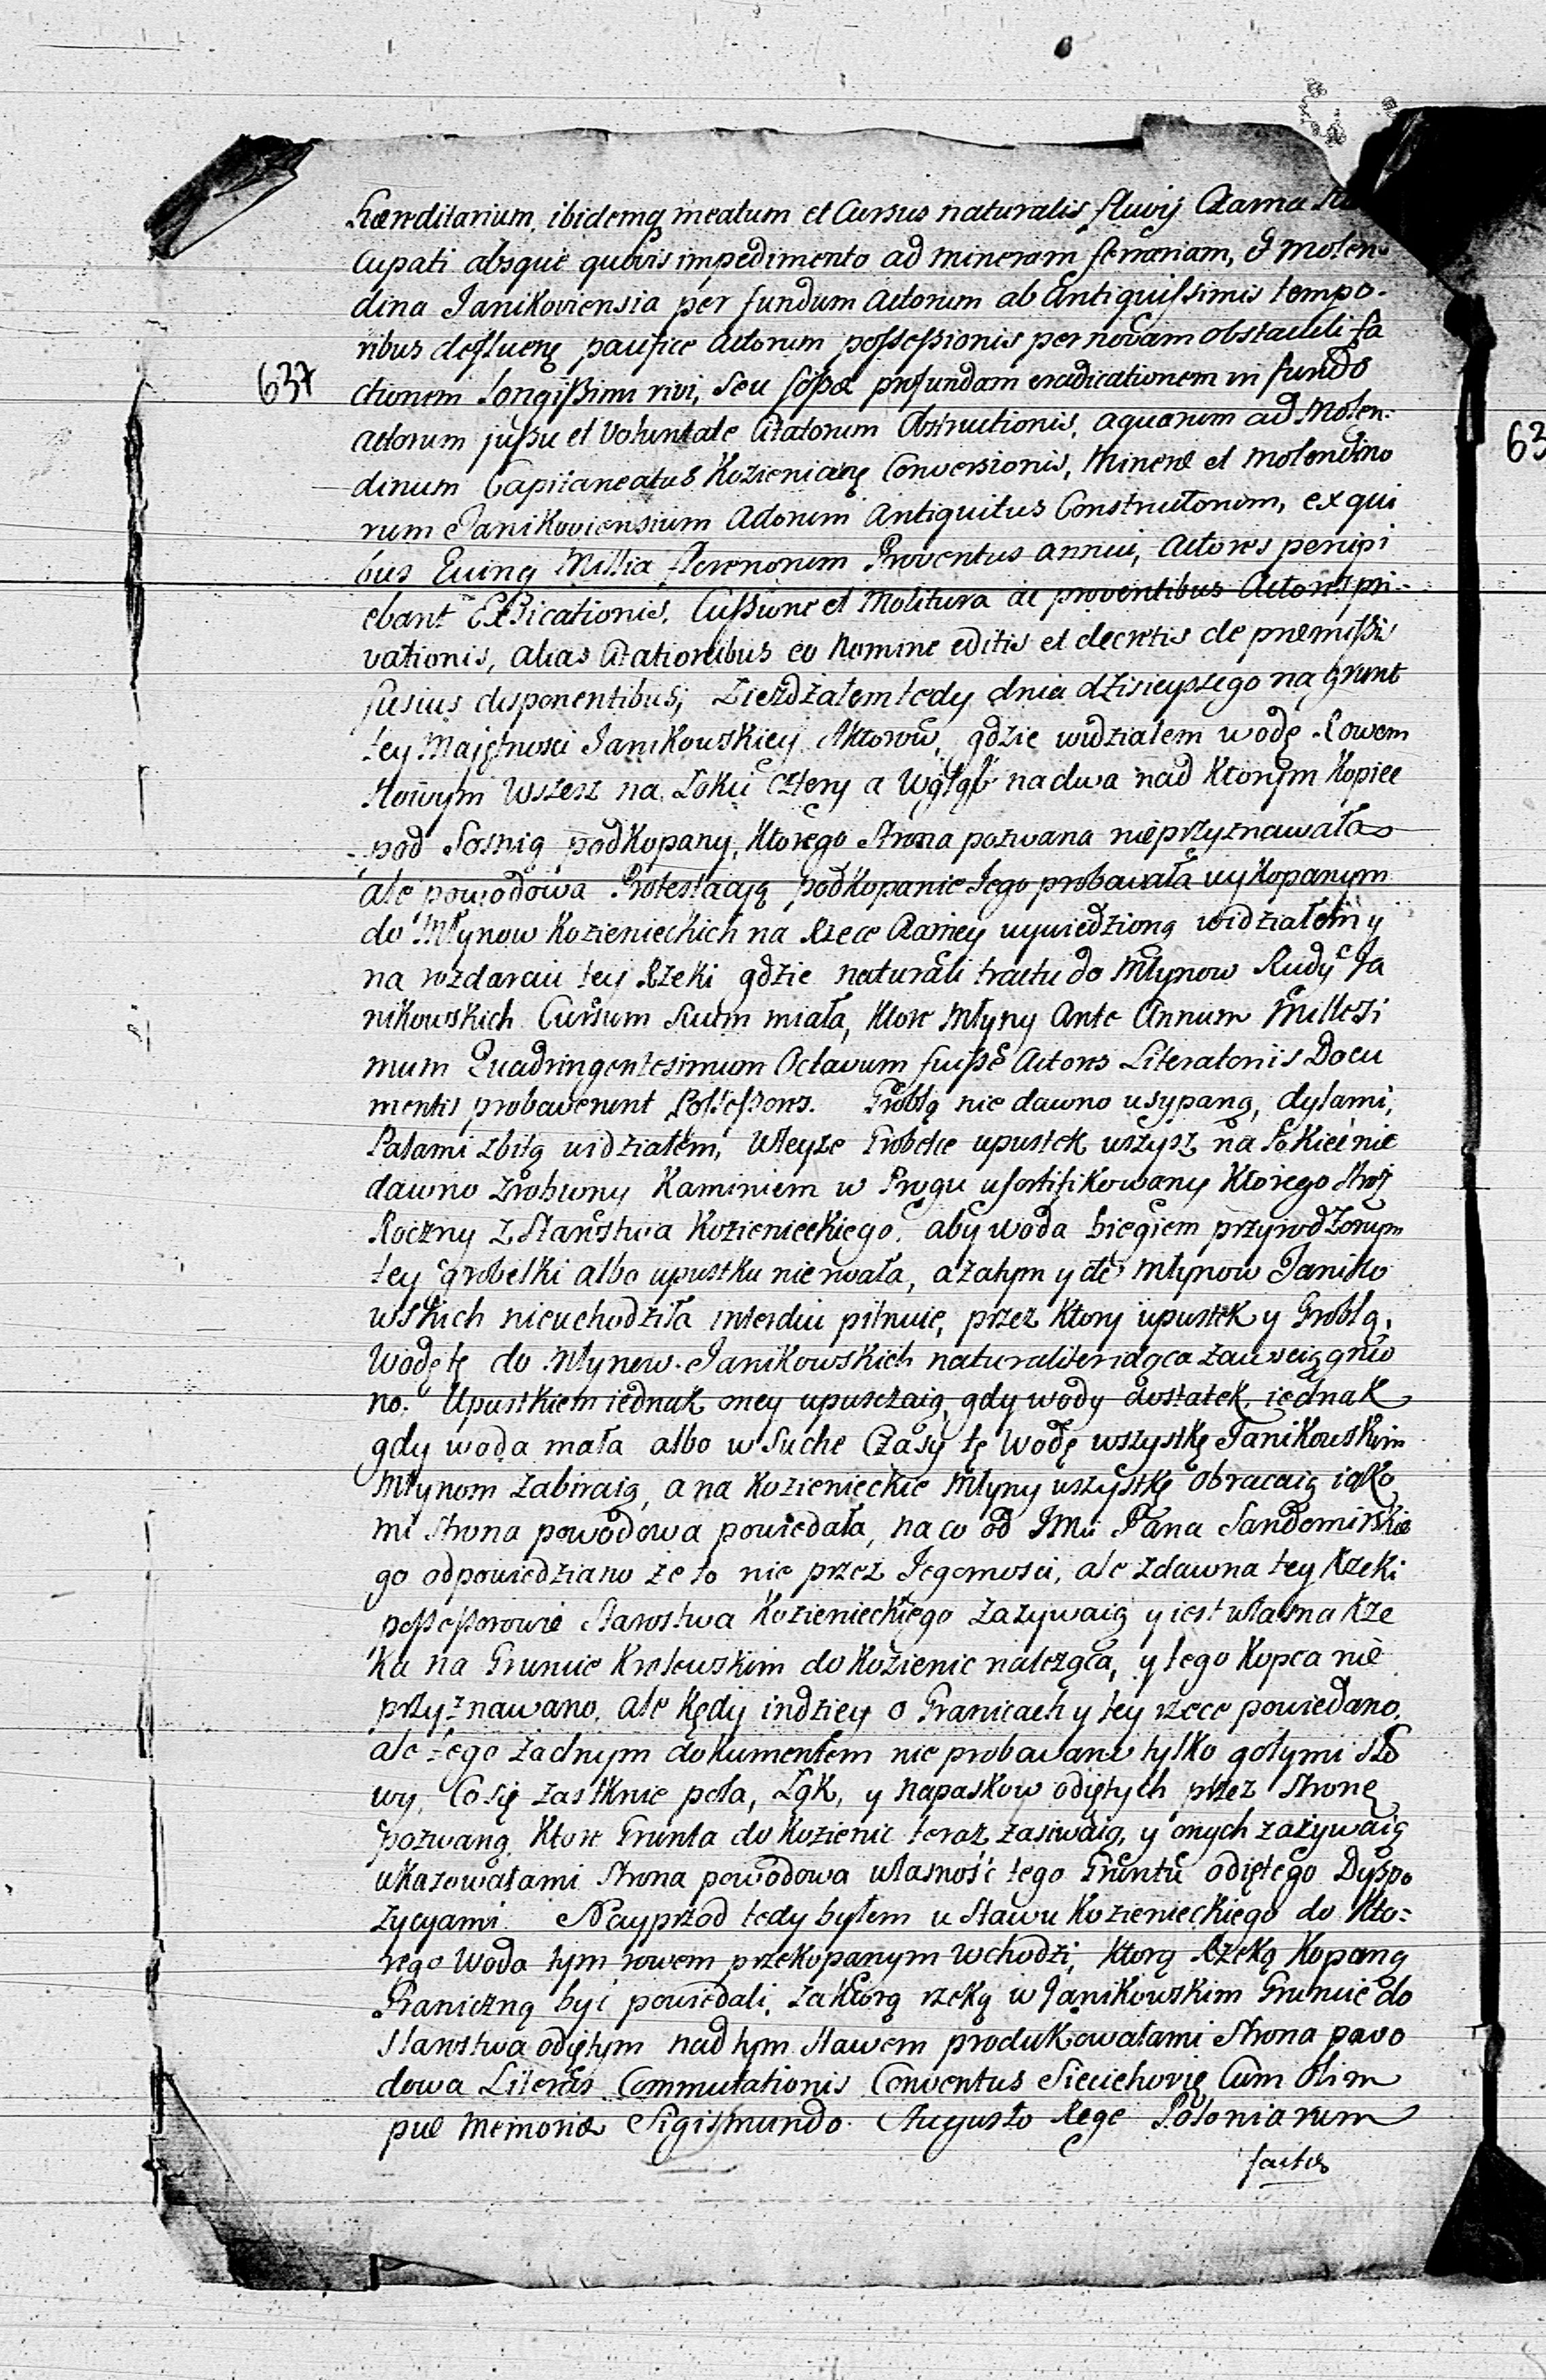 Hæreditarium, ibidemq meatum et Cursus naturalis fluvij Czarna
cupati absque quovis impedimento ad mineram ferrariam, et molen-
dina Janikoviensia per fundum Actorum ab antiquissimis tempo-
ribus defluere pacifice Actorum possessionis per novam obstaculi fa
637
ctionem longissimi rivi, seu fossæ profundam eradicationem in fundo
Actorum jussu et voluntate Citatorum Obstructionis, aquarum ad Molen-
dinum Capitaneatus Kozienicensis Conversionis, Mineræ et molendino
rum Janikoviensium Actorum Antiquitus Constructorum, ex qui
bus Millia florenorum Proventus annui, Actores percipi
ebant Exsicationis, Cussione et Molitura ac proventibus Actores pri-
vationis, alias Citationibus eo Nomine editis et decretis de præmissis
fusius disponentibus; Ziezdżałem tedy dnia dzisieyszego na grunt
tey Maiętnosci Janikowskiey Aktorow, gdzie widziałem wodę Rowem
Nowym wszerz na Łokci cztery a Wgłąb na dwa nad ktorym kopiec
pod Sosnią podkopany, ktorego strona pozwana nieprzyznawała
ale powodowa Protestacyą podkopanie Jego probawała wykopanym
do Młynow Kozienieckich na Rzece Czarney wywiedzioną widziałem y
na rozdarciu tey Rzeki gdzie naturali tractu do Młynow Rudy Ja
nikowskich Cursum suum miała, ktore Młyny Ante Annum Millesi
mum Quadringentesimum Octavum fuisse Actores Literatoriis Docu
mentis probaverunt Possessores. Groblą nie dawno usypaną, dylami,
Palami zbitą widziałem, wteyze Grobelce upustek wszysz na Łokieć nie
dawno zrobiony Kaminiem w Progu ufortifikowany ktorego stroż
Roczny z Starostwa Kozienieckiego, aby woda biegiem przyrodzonym
tey grobelki albo upustku nie rwała, a zatym y do Młynow Janiko
wskich nieuchodziła interdiu pilnuie, przez ktory upustek y Groblą,
Wodę tę do Młynow Janikowskich naturaliter idąca zawsciągnio
no. Upustkiem iednak oney upuszczaią, gdy wody dostatek iednak
gdy woda mała albo w suche Czasy tę Wodę wszystkę Janikowskim
Młynom zabiraią, a na kozienieckie Młyny wszystkę obracaią iako
mi strona powodowa powiedała, na co od JMci Pana Sandomirskie
go odpowiedziano że to nie przez Jegomosci, ale zdawna tey Rzeki
possessorowie Starostwa Kozienieckiego zazywaią y iest własna Rze
ka na Gruncie Krolewskim do Kozienic należąca, y tego Kopca nie
przyznawano, ale kędy indziey o Granicach y tey rzece powiedano,
ale tego żadnym dokumentem nie probawano tylko gołymi sło
wy, Co się zasknie pola, Łąk, y Napaskow odiętych przez stronę
pozwaną, ktore Grunta do Kozienic teraz zasiwaią, y onych zażywaią
ukazowałami Strona powodowa własność tego Gruntu odiętego Dyspo
zycyami. Nayprzod tedy byłem u Stawu Kozienieckiego do kto-
rego Woda tym rowem przekopanym wchodzi, ktorą Rzeką kopaną
Graniczną być powiedali, zaktorą rzeką w Janikowskim Gruncie do
starostwa odiętym nad tym stawem produkowałami Strona powo
dowa Literas Commutationis Conventus Sieciehoviæ Cum olim
piæ Memoriæ Sigismundo Augusto Rege Poloniarum
factas
63